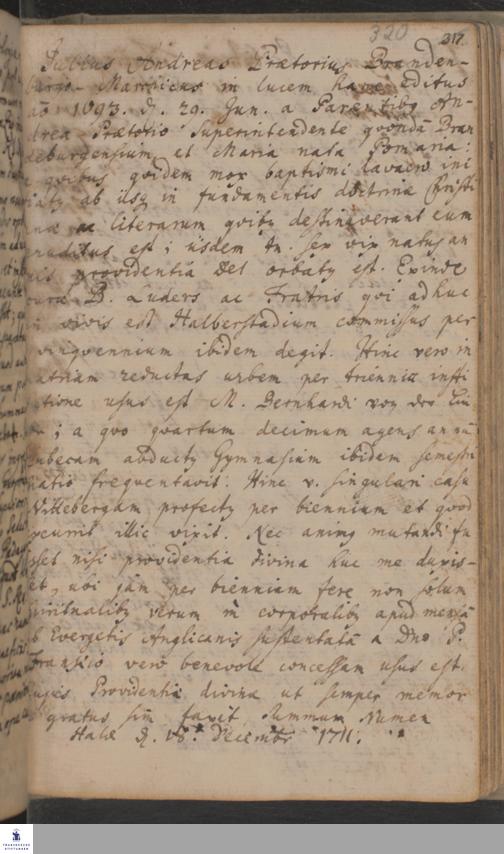 320 317
Julius Andreas Prætorius Branden-
burgo-Marchicus in lucem hanc editus
aō 1693. d. 29. Jun. a Parentibq An-
drea Prætorio Superintendente qvondā Bran
deburgensium et Maria nata Pomaria:
qvibus qvidem mox baptismi lavacro ini
ab iisq in fundamentis doctrinæ Christi
anæ ac literarum qvibq destinaverant eum
eruditus est; iisdem tn. sex vix natus an
nis providentia Dei orbatq est. Exinde
curæ B. Luders ac Fratris qvi adhuc
in vivis est Halberstadium commissus per
qvinqvennium ibidem degit. Hinc vero in
patriam reductus urbem per triennia insti
tutione usus est M. Bernhardi von der
; a qvo qvartum decimum agens annū
Lubecam abductq Gymnasium ibidem semestri
spatio freqventavit. Hinc v. singulari casu
Wittebergam profectq per biennium et qvod
excurrit illic vixit. Nec animq mutandi fu
isset nisi providentia divina huc me duxis-
set, ubi jam per biennium fere non solum
spiritualibq verum in corporalibq apud mensā
ab Evergetis Anglicanis sustentatā a Dno P.
Franckio vero benevole concessam usus est.
Cujus Providentiæ divinæ ut semper memor
gratus sim faxit summum Numen
Halæ d. 18. Decembr 1711.
FRANCKESCHE
STIFTUNGEN